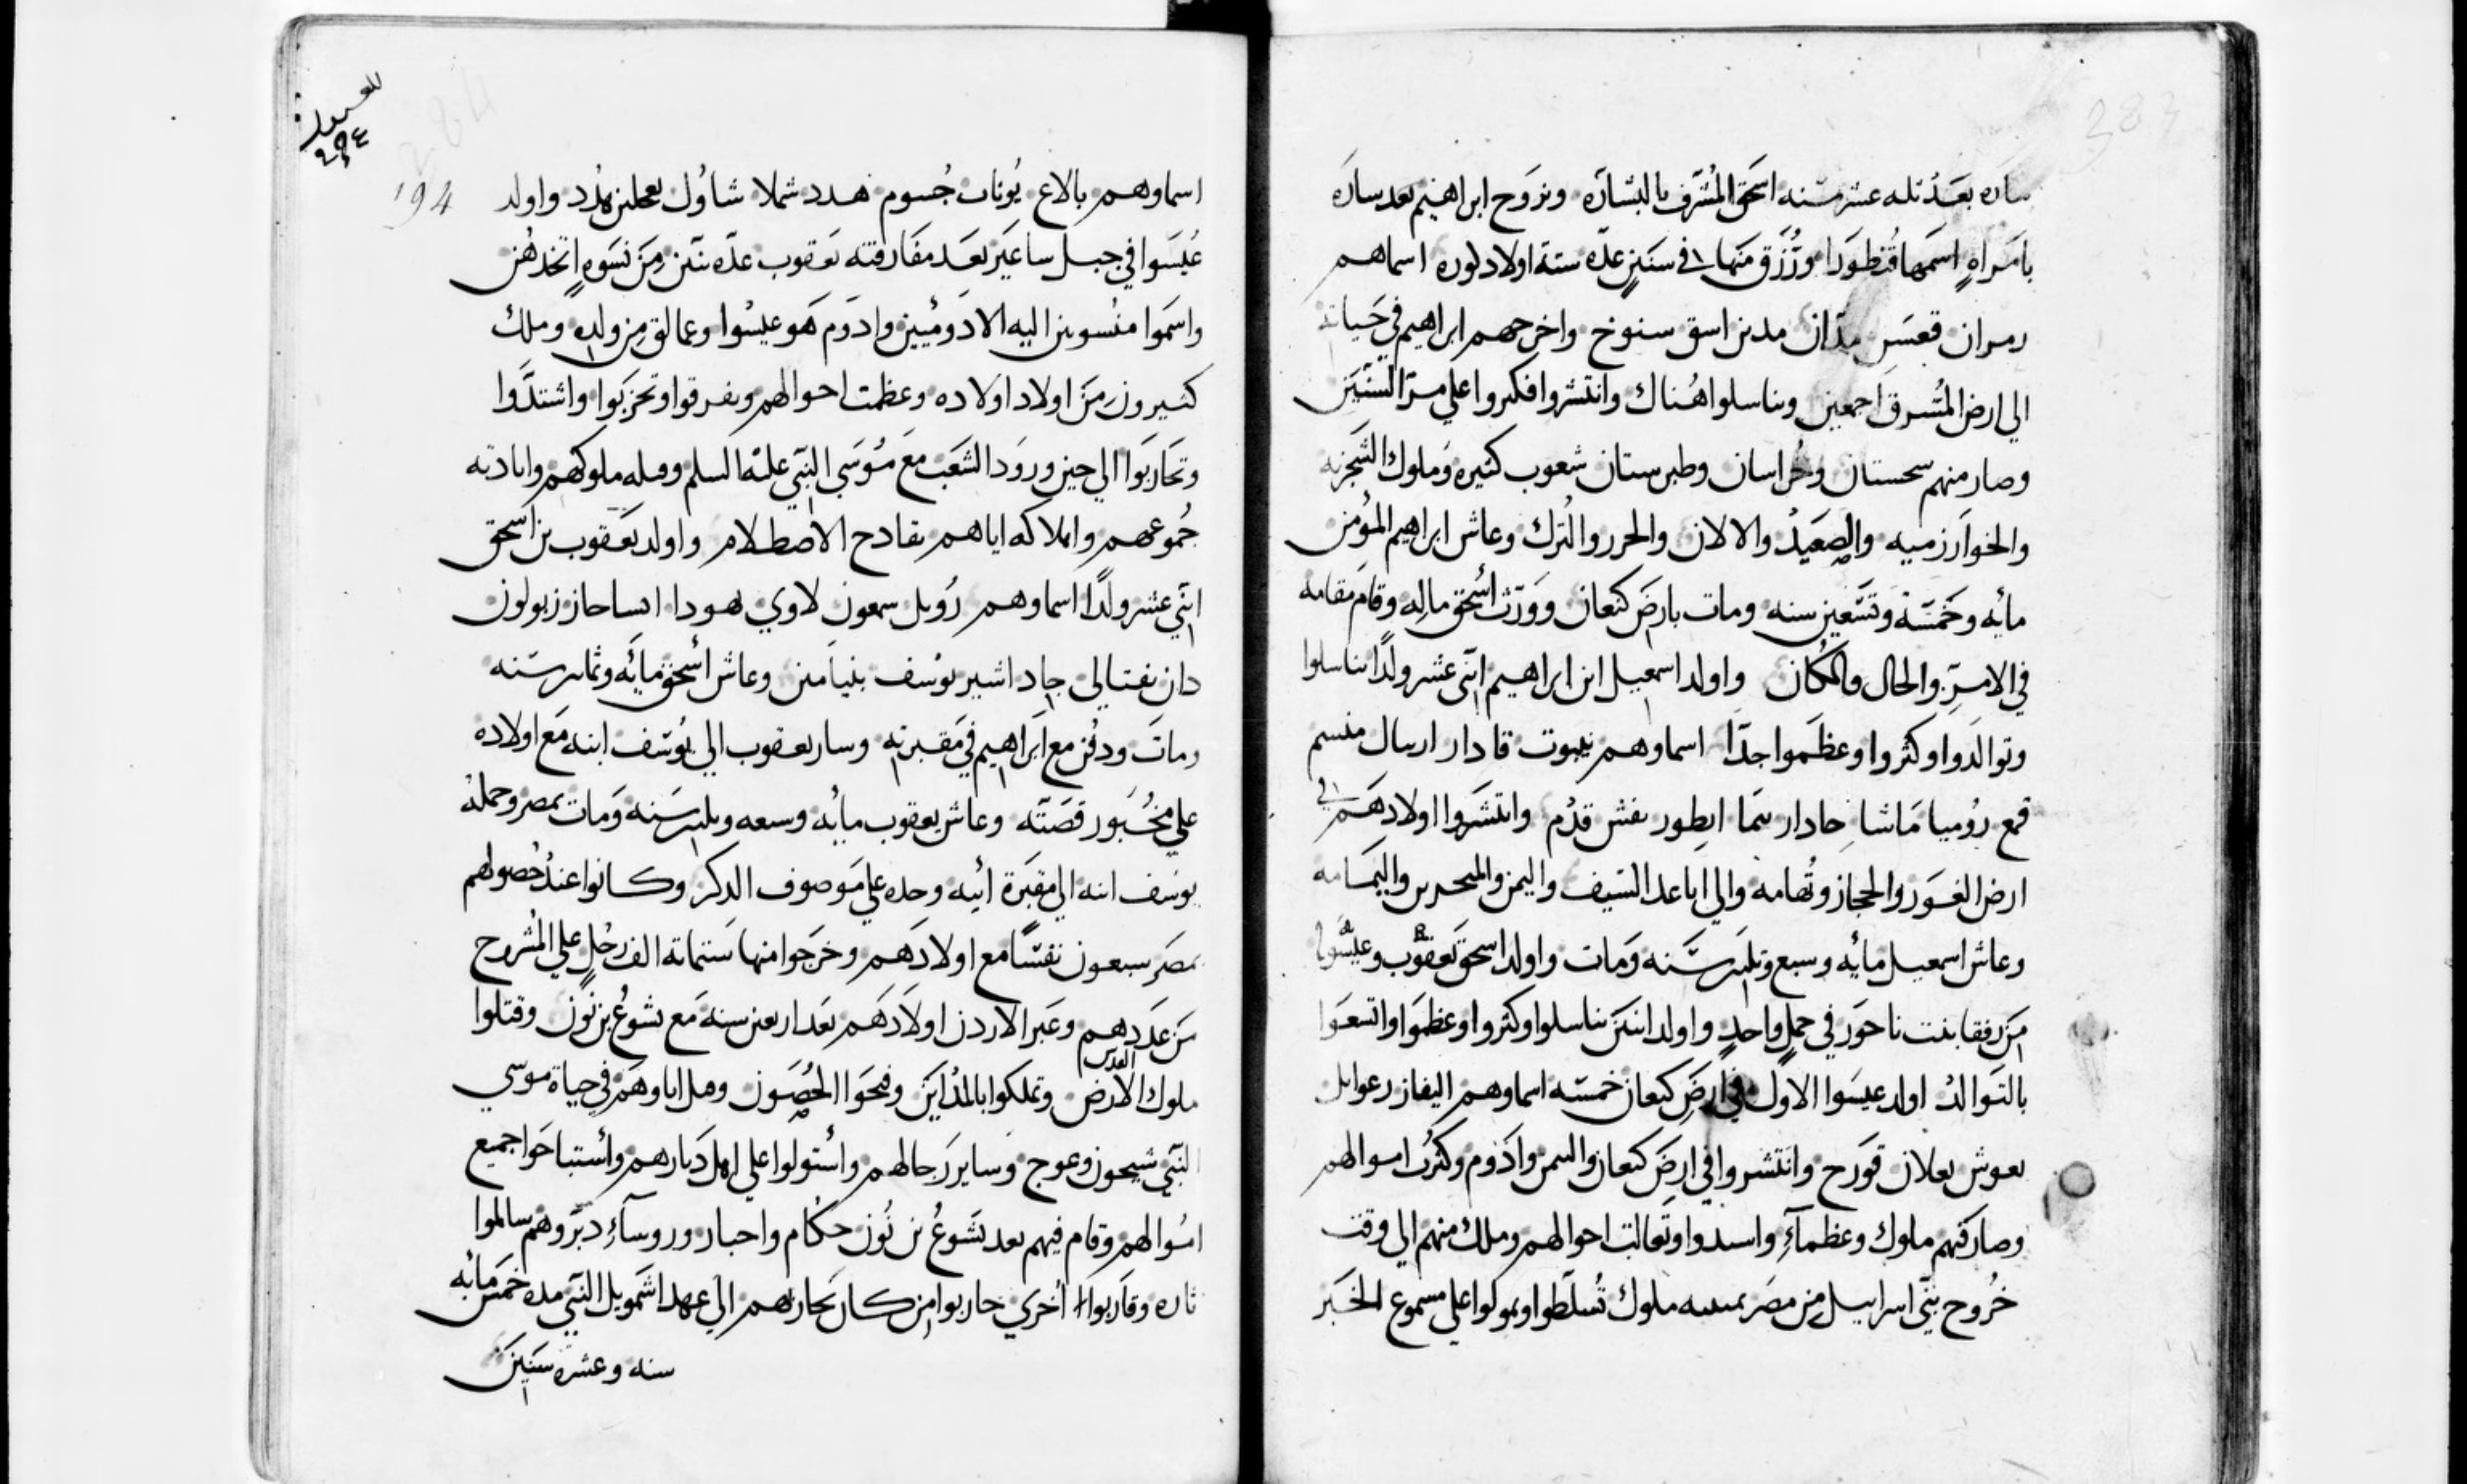 ساره بعد تله عشر سنه اسحق المشرف بالبشاره وتزوج ابراهيم بعد ساره
بامراه اسمها قنطورا ورزق منها في سنين عده ستة اولاد دكوره اسماهم
رمران قعسر مدان مدين اسق سنوخ واخرجهم ابراهيم في حياته
الي ارض المشرق اجمعين وتناسلوا هناك وانتشروا فكبروا علي مر السنين
وصار منهم سحستان وخراسان وطبرستان شعوب كثيره وملوك الشجريه
والخوارزميه والصعيد والالان والحرر والترك وعاش ابراهيم المؤمن
مائه وخمسة وتسعين سنه ومات بارض كنعان وورث اسحق ماله وقام مقامه
في الامر والحال والمكان واولد اسمعيل ابن ابراهيم اثني عشر ولدا تناسلوا
وتوالدوا وكثروا وعظموا جدا اسماوهم نبيوت قادار ارسال منسم
قمع روميا ماشا حادار تيما ايطور نفش قدم وانتشروا اولادهم في
ارض الغور والحجاز وتهامه والي اباعد السيف واليمن والبحرين واليمامه
وعاش اسمعيل مائه وسبع وتلثين سنه ومات واولد اسحق يعقوب وعيسوا
من رفقا بنت ناحور في حمل واحد واولد اثنين تناسلوا وكثروا وعظموا واتسعوا
بالتوالد اولد عيسوا الاول في ارض كنعان خمسه اسماوهم اليفاز رعوايل
يعوش يعلان قورح وانتشروا في ارض كنعان واليمن وادوم وكثرت اموالهم
وصار منهم ملوك وعظماء واستدوا وتعالت احوالهم وملك منهم الي وقت
خروح بني اسراييل من مصر ثمنيه ملوك تسلطوا وتمولوا علي مسموع الخبر
194
اسماوهم بالاع يوناب جسوم هدد شملا شاول بعلحنن هدد واولد
عيسوا في جبل ساعير بعد مفارقته يعقوب عده بنين من نسوه اتخدهن
واسموا منسوبين اليه الادوميين وادوم هو عيسوا وعمالق من ولده وملك
كثيرون من اولاد اولاده وعظمت احوالهم وتفرقوا وتحزبوا واشتدوا
وتحاربوا الي حين ورود الشعب مع موسي النبي عليه السلم وقتله ملوكهم وابادته
جموعهم واهلاكه اياهم بفادح الاصطلام واولد يعقوب بن اسحق
اثني عشر ولدا اسماوهم روبل سمعون لاوي يهودا ايساحار زبولون
دان نفتالي جاد اشير يوسف بنيامين وعاش اسحق مائه وثمانين سنه
ومات ودفن مع ابراهيم في مقبرته وسار يعقوب الي يوسف ابنه مع اولاده
علي مخبور قصته وعاش يعقوب مائه وسبعه وتلثين سنه ومات بمصر وحمله
يوسف ابنه الي مقبرة ابيه وحده علي موصوف الدكر وكانوا عند حصولهم
بمصر سبعون نفسا مع اولادهم وخرجوا منها ستماية الف رجل علي المشروح
من عددهم وعبر الاردن اولادهم بعد اربعين سنه مع يشوع بن نون وقتلوا
ملوك الارض القدس وتملكوا بالمداين وفتحوا الحصون وقتل اباوهم في حياة موسي
النبي شيحون وعوج وساير رجالهم واستولوا علي اهل ديارهم واستباحوا جميع
اموالهم وقام فيهم بعد يشوع بن نون حكام واحبار وروساء دبروهم سالموا
تاره وقاربوا اخري حاربوا من كان يحاربهم الي عهد اشمويل النبي مده خمس مائه
سنه وعشرة سنين